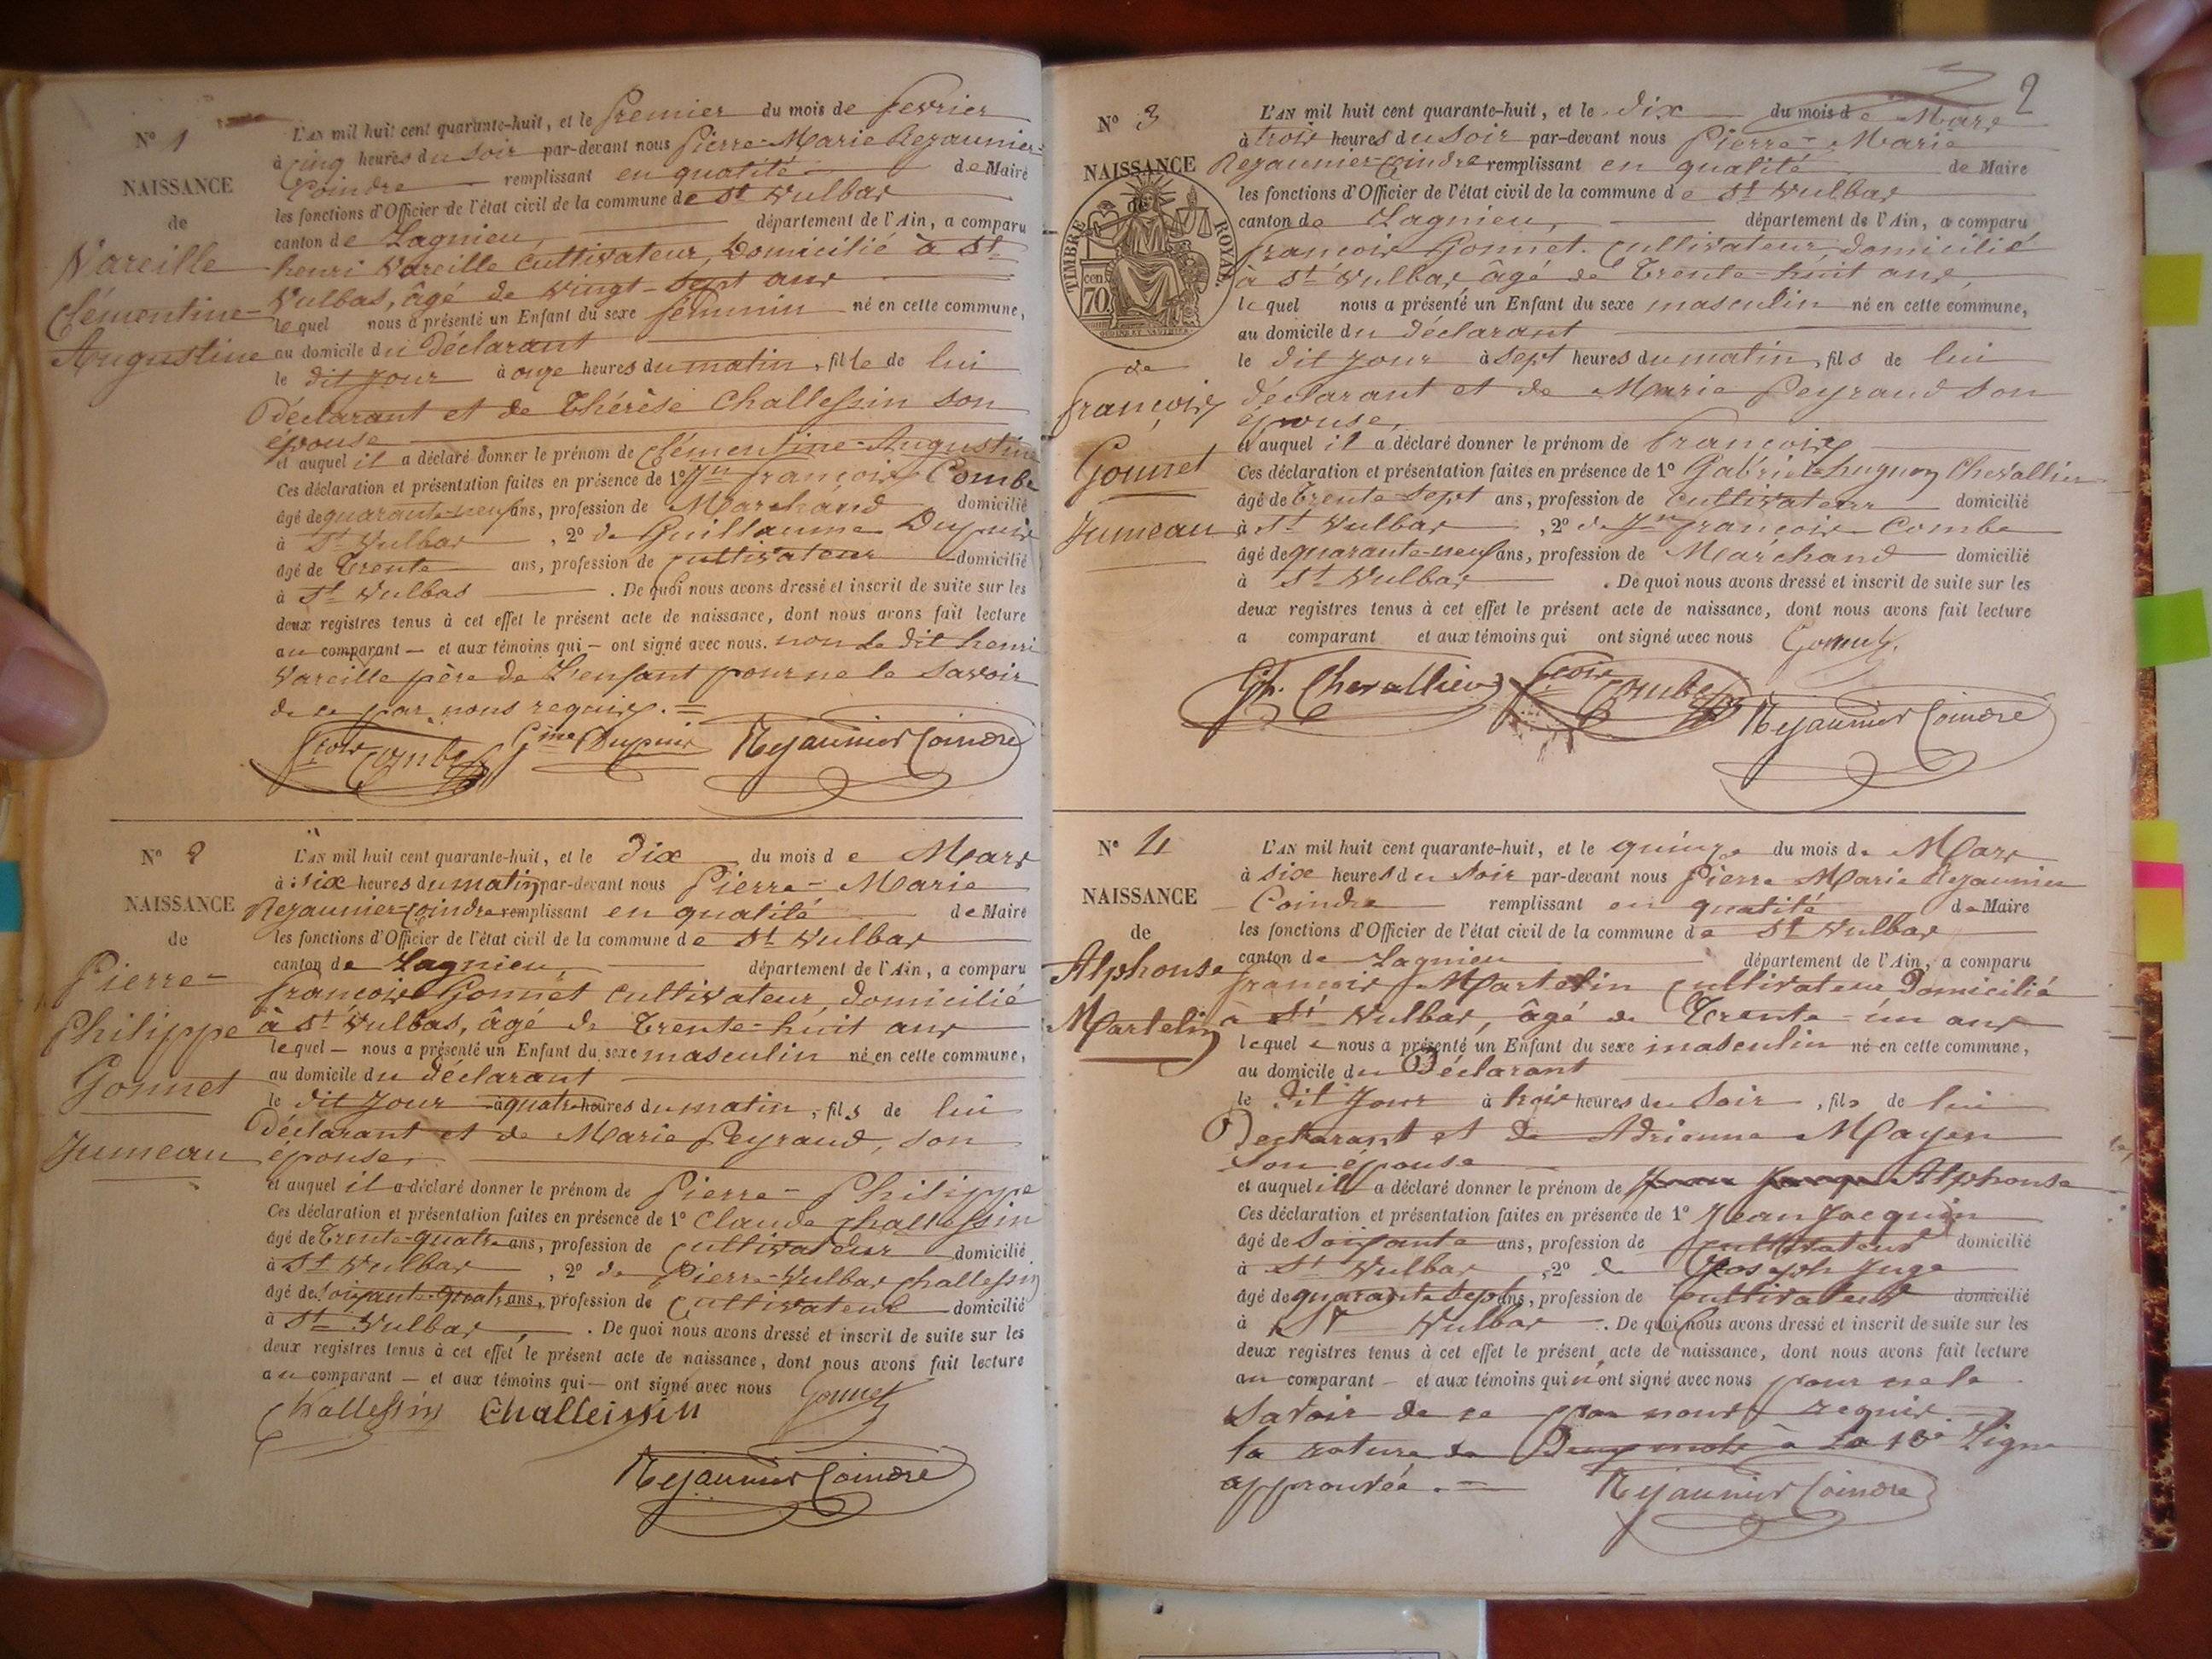 N° 1
NAISSANCE
de
Vareille
Clémentine-
Augustine
L'AN mil huit cent quarante-huit, et le premier du mois de fevrier
à cinq heures du soir par-devant nous Pierre-Marie Rejaunier-
Coindre remplissant en qualité de Maire
les fonctions d'Officier de l'état civil de la commune de St Vulbas
canton de Lagnieu, département de l'Ain, a comparu
henri Vareille cultivateur, Domicilié à St
Vulbas, âgé de vingt-sept ans
lequel nous a présenté un Enfant du sexe féminin né en cette commune,
au domicile du Déclarant
le dit jour à onze heures du matin, fille de lui
Déclarant et de Thérèse Challessin son
épouse
et auquel il a déclaré donner le prénom de Clémentine-Augustine
Ces déclaration et présentation faites en présence de 1° Jn françois Combe
âgé de quarante-neuf ans, profession de Marchand domicilié
à St Vulbas, 2° de Guillaume Dupuis
âgé de Trente ans, profession de cultivateur domicilié
à St Vulbas. De quoi nous avons dressé et inscrit de suite sur les
deux registres tenus à cet effet le présent acte de naissance, dont nous avons fait lecture
au comparant — et aux témoins qui — ont signé avec nous. non le dit henri
Vareille père de L'enfant pour ne le savoir
de ce par nous requis. =
fcois Combe Gme Dupuis Rejaunier Coindre
N° 2
NAISSANCE
de
Pierre-
Philippe
Gonnet
Jumeau
L'AN mil huit cent quarante-huit, et le Dix du mois de Mars
à six heures du matin par-devant nous Pierre-Marie
Rejaunier-Coindre remplissant en qualité de Maire
les fonctions d'Officier de l'état civil de la commune de St Vulbas
canton de Lagnieu, département de l'Ain, a comparu
françois Gonnet cultivateur, domicilié
à St Vulbas, âgé de Trente-huit ans
lequel — nous a présenté un Enfant du sexe masculin né en cette commune,
au domicile du déclarant
le dit jour à quatre heures du matin, fils de lui
Déclarant et de Marie Peyraud, son
épouse,
et auquel il a déclaré donner le prénom de Pierre-Philippe
Ces déclaration et présentation faites en présence de 1° Claude Challessin
âgé de Trente-quatre ans, profession de Cultivateur domicilié
à St Vulbas, 2° de Pierre-Vulbas Challessin
âgé de soixante-quatre ans, profession de Cultivateur domicilié
à St Vulbas,. De quoi nous avons dressé et inscrit de suite sur les
deux registres tenus à cet effet le présent acte de naissance, dont nous avons fait lecture
au comparant — et aux témoins qui — ont signé avec nous Gonnet
Challessin Challeissin
Rejaunier Coindre
2
N° 3
NAISSANCE
de
TIMBRE ROYAL.
70 cen
de
françois
Gonnet
Jumeau
L'AN mil huit cent quarante-huit, et le dix du mois de Mars
à trois heures du soir par-devant nous Pierre-Marie
Rejaunier-Coindre remplissant en qualité de Maire
les fonctions d'Officier de l'état civil de la commune de St Vulbas
canton de Lagnieu, département de l'Ain, a comparu
françois Gonnet. Cultivateur, domicilié
à St Vulbas, âgé de Trente-huit ans,
lequel nous a présenté un Enfant du sexe masculin né en cette commune,
au domicile du déclarant
le dit jour à sept heures du matin, fils de lui
déclarant et de Marie Peyraud son
épouse,
et auquel il a déclaré donner le prénom de françois
Ces déclaration et présentation faites en présence de 1° Gabriel-hugues Chevallier
âgé de Trente sept ans, profession de Cultivateur domicilié
à St Vulbas, 2° de Jn françois Combe
âgé de quarante-neuf ans, profession de Marchand domicilié
à St Vulbas. De quoi nous avons dressé et inscrit de suite sur les
deux registres tenus à cet effet le présent acte de naissance, dont nous avons fait lecture
a comparant et aux témoins qui ont signé avec nous Gonnet.
Gh. Chevallier fcois Combe Rejaunier Coindre
N° 4
NAISSANCE
de
Alphonse
Martelin
L'AN mil huit cent quarante-huit, et le quinze du mois de Mars
à six heures du soir par-devant nous Pierre Marie Rejaunier
Coindre remplissant en qualité de Maire
les fonctions d'Officier de l'état civil de la commune de St Vulbas
canton de Lagnieu département de l'Ain, a comparu
françois Martelin Cultivateur Domicilié
à St Vulbas, âgé de Trente-un ans
lequel nous a présenté un Enfant du sexe masculin né en cette commune,
au domicile du Déclarant
le dit jour à trois heures du soir, fils de lui
Declarant et de Adrienne Mayen
son épouse
et auquel il a déclaré donner le prénom de Alphonse
Ces déclaration et présentation faites en présence de 1° Jean Jacquin
âgé de soixante ans, profession de cultivateur domicilié
à St Vulbas, 2° de Joseph Juge
âgé de quarante sept ans, profession de cultivateur domicilié
à St Vulbas. De quoi nous avons dressé et inscrit de suite sur les
deux registres tenus à cet effet le présent acte de naissance, dont nous avons fait lecture
au comparant — et aux témoins qui n'ont signé avec nous pour ne le
savoir de ce par nous requis. —
la rature de Deux mots à la 13e Ligne
approuvée. = Rejaunier Coindre